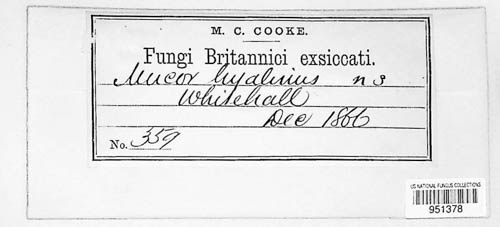 M. C. COOKE.
Fungi Britannici exsiccati.
Mucor hyalinus n s
Whitehall
Dec 1866
No. 359
US NATIONAL FUNGUS COLLECTIONS
951378